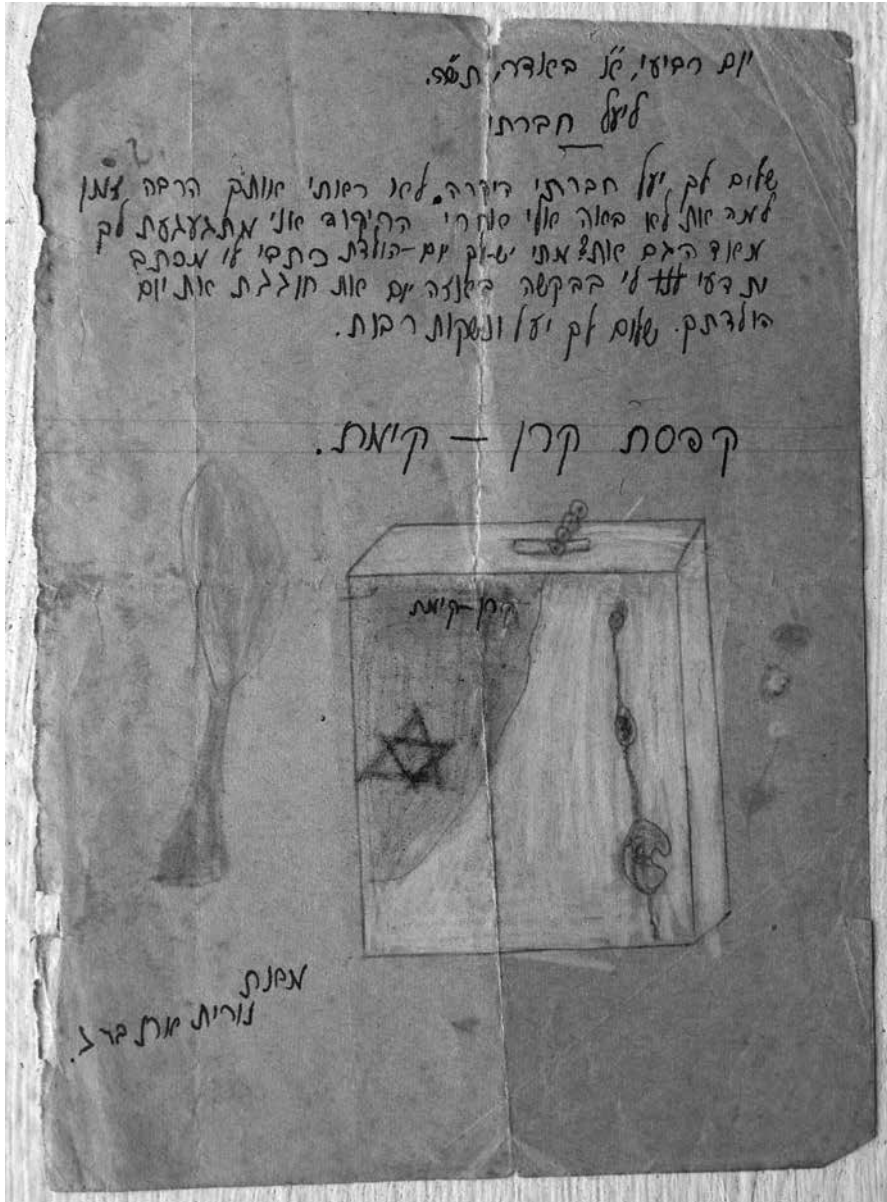 יום רביעי, א' באדר, תש"ה.
ליעל חברתי
שלום לך יעל חברתי היקרה. לא ראותי אותך הרבה זמן
למה את לא באה אלי אחרי הריקוד אני מתגעגעת לך
מאוד הגם את? מתי יש לך יום-הולדת כיתבי לי מכתב
לי בבקשה באיזה יום את חוגגת את יום
הולדתך. שלום לך יעל ונשקות רבות.
קפסת קרן – קימת.
קרן-קימת
מאת
נורית